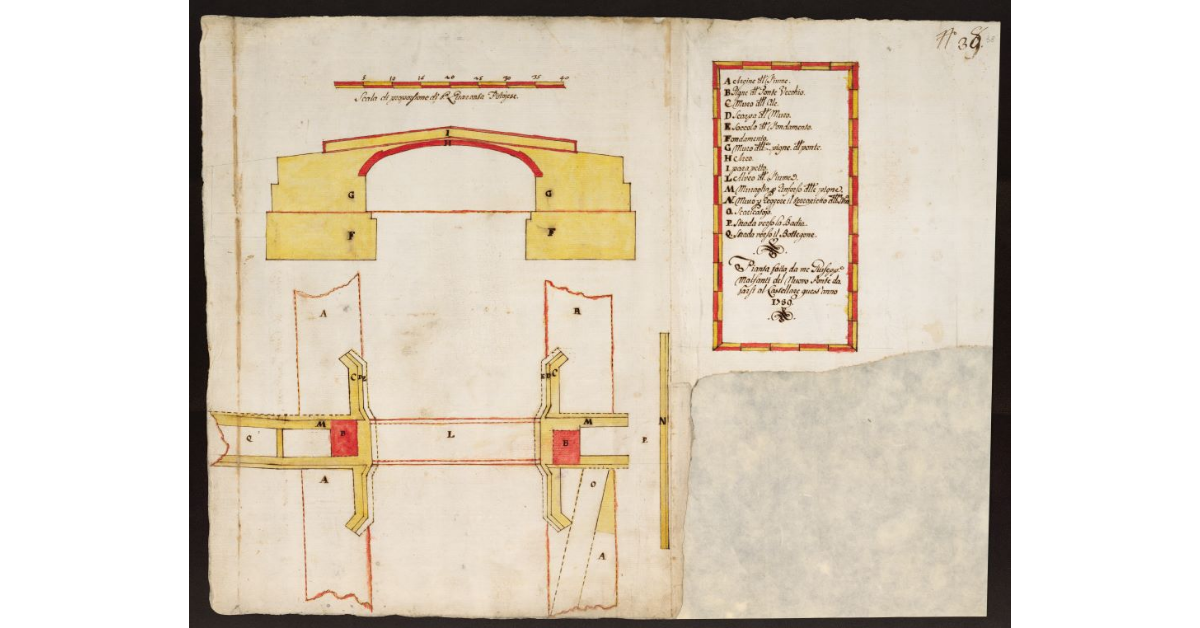 N° 39
5 10 15 20 25 30 35 40
Scala di proporzione di Braccata Pistojese
I
H
G G
F F
A A
C D E E D C
M M N
Q B L B P
A O
A
A Argine del fiume.
B Pigne del Ponte Vecchio.
C Muro dell Ale.
D Scarpa del Muro.
E Zoccolo del fondamento.
F ondamento.
G Muro delle pigne del ponte.
H Arco.
I parapetto.
L Alveo del fiume.
M Muraglia p rinforzo delle pigne.
N Muro p
O Scalcatojo.
P Strada verso la Badia.
Q Strada verso il Bottegone.
Pianta fatta da me Giuseppe
Malfanti del Nuovo Ponte da
farsi al Castellare quest'anno